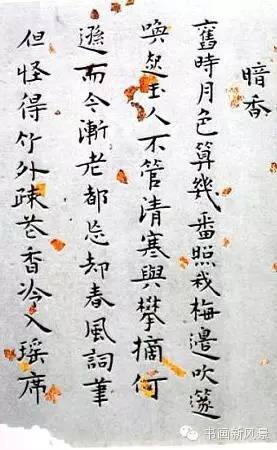 暗香
舊時月色算幾番照我梅邊吹篴
喚起玉人不管清寒與攀摘何
遜而今漸老都忘却春風詞筆
但怪得竹外疎花香冷入瑶席
书画新风景